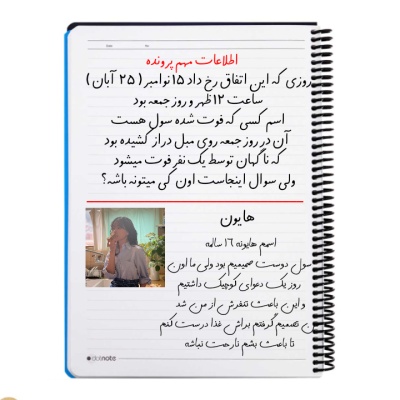 اطلاعات مهم پرونده
روزی که این اتفاق رخ داد ۱۵ نوامبر ( ۲۵ آبان )
ساعت ۱۲ ظهر و روز جمعه بود
اسم کسی که فوت شده سول هست
آن در روز جمعه روی مبل دراز کشیده بود
که ناگهان توسط یک نفر فوت میشود
ولی سوال اینجاست اون کی میتونه باشه؟
هایون
اسمم هایونه ۱۶ سالمه
سول دوست صمیمیم بود ولی ما اون
روز یک دعوای کوچیک داشتیم
و این باعث تنفرش از من شد
من تصمیم گرفتم براش غذا درست کنم
تا باعث بشم نارحت نباشه
dotnote